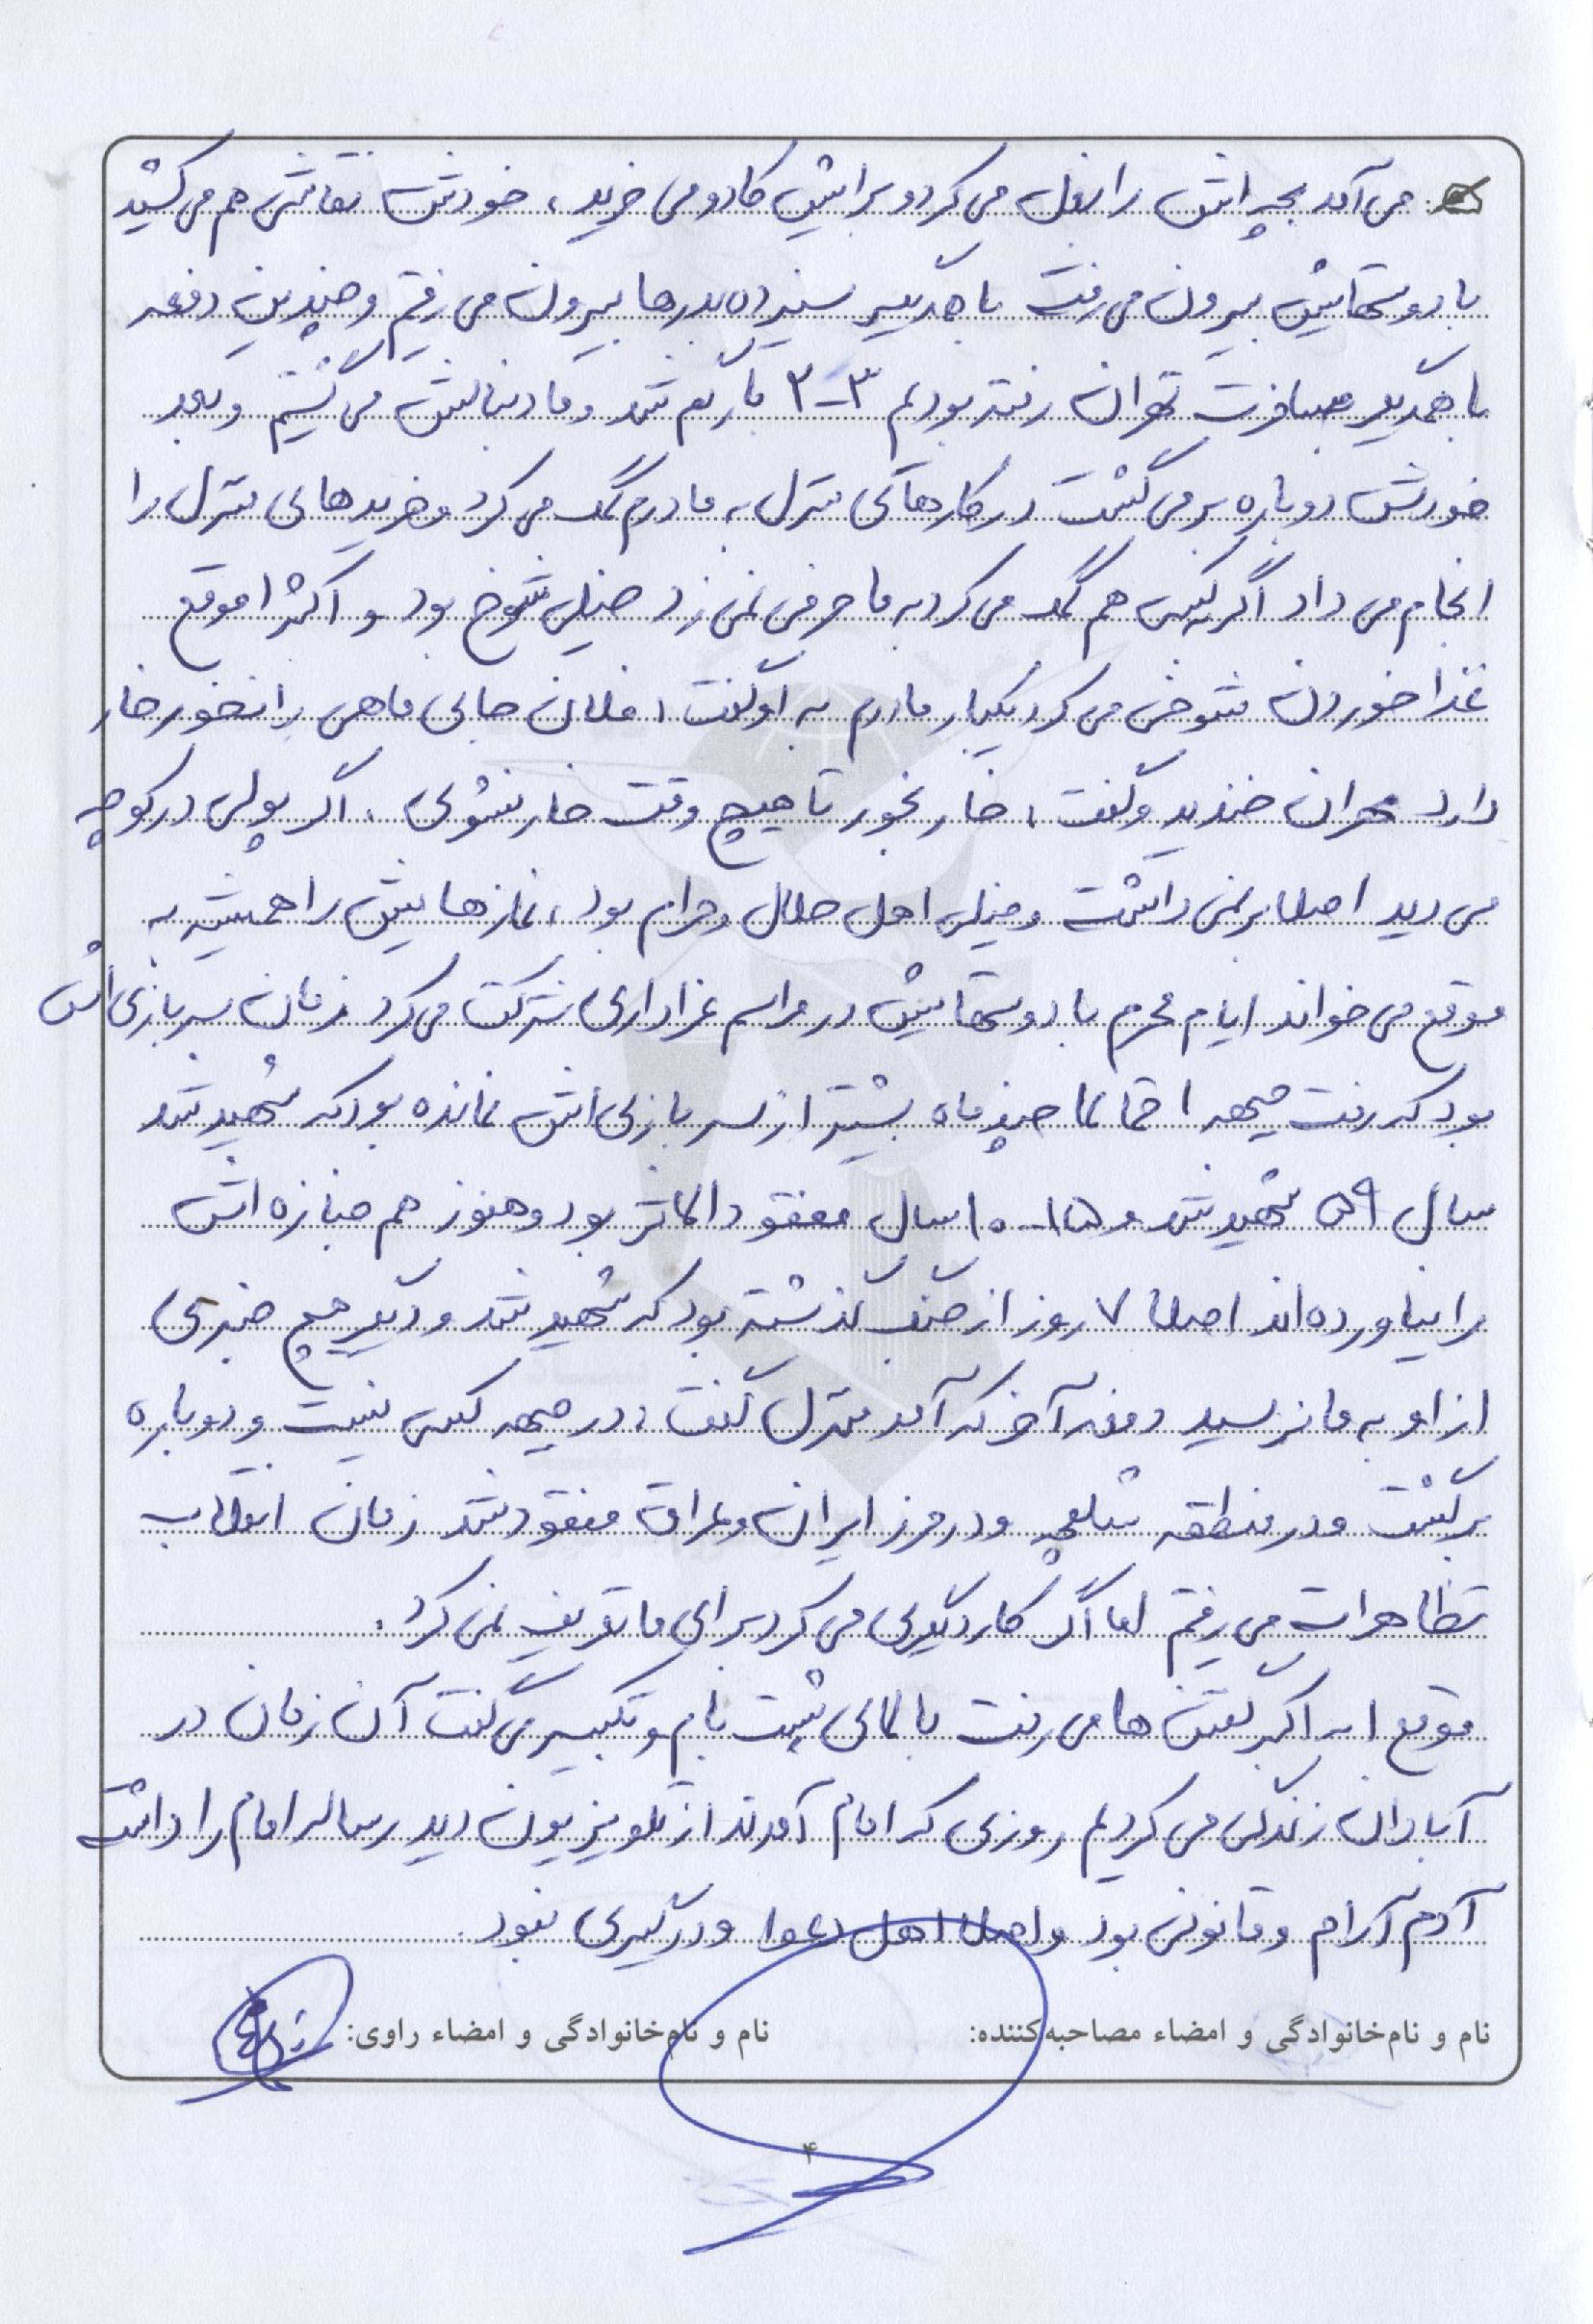 می‌آمد بچه اش را بغل می کرد و برایش کادو می خرید، خودش نقاشی هم می کشید
با دوستهایش بیرون می رفت با همدیگر سیزده بدرها بیرون می رفتیم و چندین دفعه
با همدیگر مسافرت تهران رفته بودیم ۳-۲ بار گم شد و ما دنبالش می گشتیم و بعد
خودش دوباره بر می گشت در کارهای منزل به مادرم کمک می کرد و خریدهای منزل را
انجام می داد اگر به کسی هم کمک می کرد به ما حرفی نمی زد خیلی شوخ بود و اکثرا موقع
غذا خوردن شوخی می کرد یکبار مادرم به او گفت: فلان جای ماهی را نخور خار
دارد مهران خندید و گفت: خار بخور تا هیچ وقت خار نشوی. اگر پولی در کوچه
می دید اصلا بر نمی داشت و خیلی اهل حلال و حرام بود، نمازهایش را همیشه به
موقع می خواند ایام محرم با دوستهایش در مراسم عزاداری شرکت می کرد زمان سربازی اش
بود که رفت جبهه احتمالا چند ماه بیشتر از سربازی اش نمانده بود که شهید شد
سال ۵۹ شهید شد و ۱۵-۱۰ سال مفقود الاثر بود و هنوز هم جنازه اش
را نیاورده اند اصلا ۷ روز از جنگ گذشته بود که شهید شد و دیگر هیچ خبری
از او به ما نرسید دفعه آخر که آمد منزل گفت: در جبهه کسی نیست و دوباره
برگشت و در منطقه شلمچه و در مرز ایران و عراق مفقود شد زمان انقلاب
تظاهرات می رفتم اما اگر کار دیگری می کرد برای ما تعریف نمی کرد.
موقع الله اکبر گفتن ها می رفت بالای پشت بام و تکبیر می گفت آن زمان در
آبادان زندگی می کردیم روزی که امام آمدند از تلویزیون دید رساله امام را داشت
آدم آرام و قانونی بود و اصلا اهل دعوا و درگیری نبود.
نام و نام‌خانوادگی و امضاء مصاحبه‌کننده: نام و نام‌خانوادگی و امضاء راوی:
۴